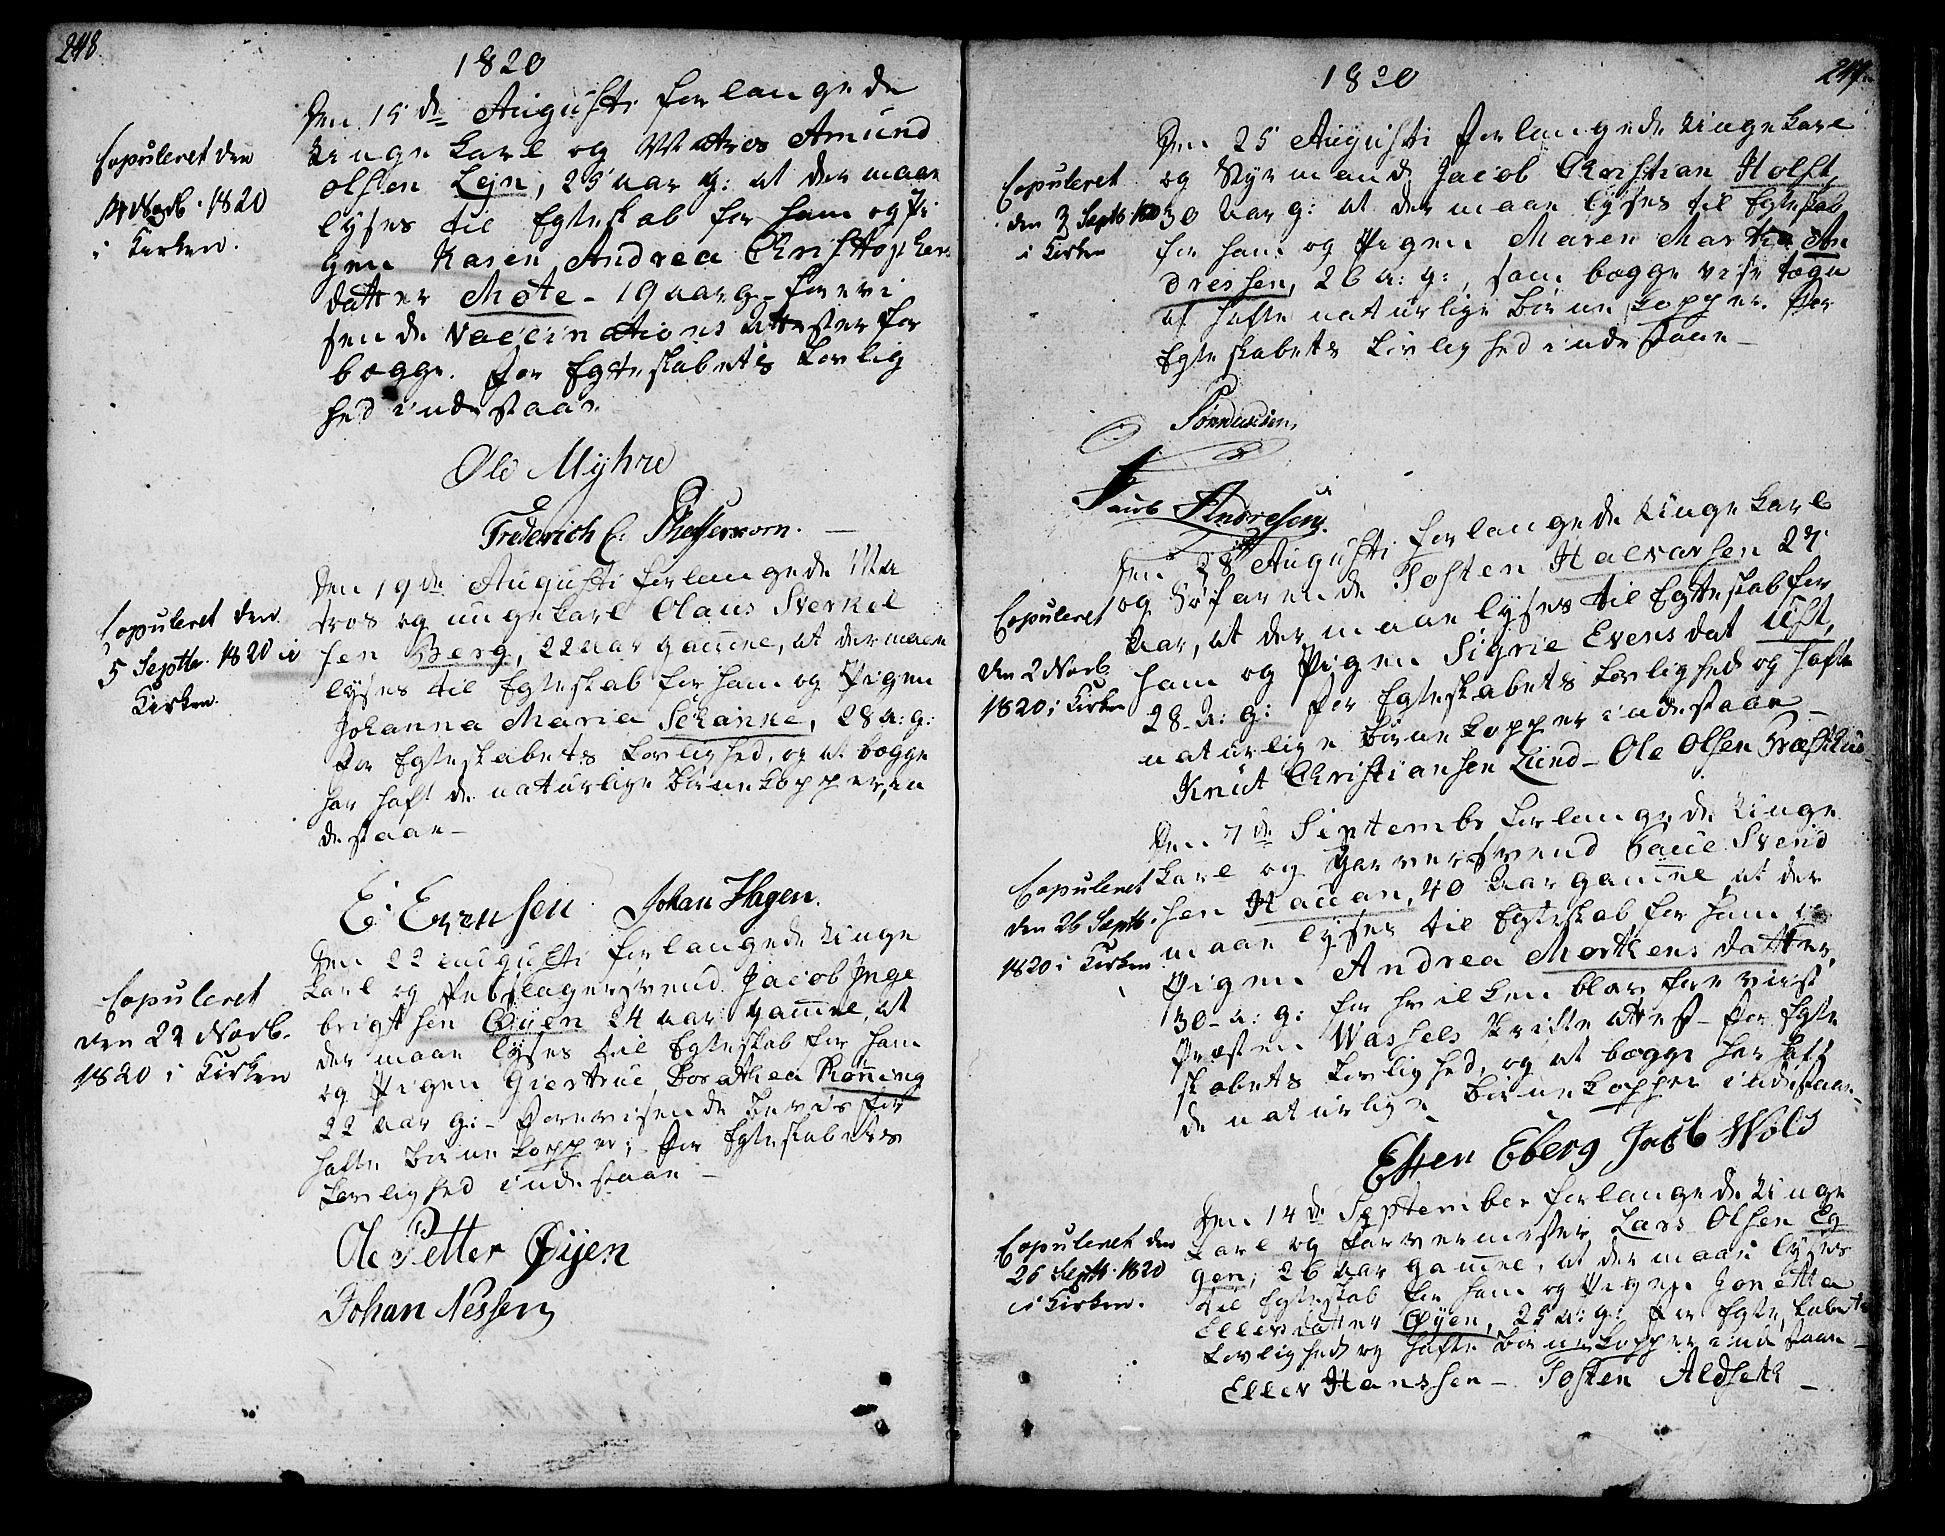 248.
1820
Copuleret den
Novb. 1820
i Kirken.
Den 15de Augusti forlangede
Unge Karl og Matros Amund
Olsen Lejn, 25 aar g: at der maae
lyses til Egteskab for ham og Pi
gen Karen Andrea Christopher
datter Møte - 19 aar g. forevi
sende Vaccinations Attester for
begge. For Egteskabets Lovlig
hed indestaar
Ole Myhre
Frederich C.
Copuleret den
5 Septbr. 1820 i
Kirken.
Den 19de Augusti forlangede Ma
tros og ungekarl Olaus Sverkel
sen Berg, 22 aar gamle, at der maae
lyses til Egteskab for ham og Pigen
Johanna Maria Schanke, 28 a: g:
For Egteskabets Lovlighed, og at begge
har haft de naturlige Børnekopper, in
destaae -
E: Evensen. Johan Hagen.
Copuleret
den 22 Novb.
1820 i Kirken
Den 22 Augusti forlangede Unge
karl og Jacob Inge
brigtsen Øÿen 24 aar gamle, at
der maae lyses til Egteskab for ham
og Pigen Giertrue Dorathea Rønning
22 aar g: - Forevisende Bevis for
hafte Børnekopper; For Egteskabets
Lovlighed indestaae -
Ole Petter Øÿen
Johan Nessen
249.
1820
Copuleret
den 3 Septb. 1820
i Kirken
Den 25 Augusti forlangede Ungekarl
og Styrmand Jacob Christian Holst,
30 Aar g: at der maae lyses til Egteskab
for ham og Pigen Maren Martha An
dresen, 26 a: g:, som begge vise Tegn
af hafte naturlige Børnekopper. For
Egteskabets Lovlighed indestaae -
Jacob Andresen.
Copuleret
den 2 Novb.
1820 i Kirken
Den 28 Augusti forlangede Ungekarl
og Søfarende Tosten Halvarsen 27
Aar, at der maae lyses til Egteskab for
ham og Pigen Sigrie Evensdat Ust,
28 a: g: For Egteskabets Lovlighed og hafte
naturlige Børnekopper indestaae -
Knut Christiansen Lund - Ole Olsen
Copuleret
den 26 Septb.
1820 i Kirken
Den 7de Septembr forlangede Unge
karl og Garversvend Paul Svend
sen Hauan, 40 Aar gamle at der
maae lyses til Egteskab for ham og
Pigen Andrea Morthens datter,
30 - a: g: for hvilken blev foreviist
Præsten Wassels skriftl Attest - For Egte
skabets Lovlighed, og at begge har haft
de naturlige Børnekopper indestaae -
Esten Eberg Jacob Wold
Copuleret den
26 Septb. 1820
i Kirken.
Den 14de September forlangede Unge
karl og Farvermester Lars Olsen Eg
gen, 26 Aar gamle, at der maae lyses
til Egteskab for ham og Pigen Jonetta
Ellevsdatter Øÿen, 25 a: g: For Egteskabets
Lovlighed og hafte Børnekopper indestaae -
Ellev Hanssen - Tosten Aldseth -